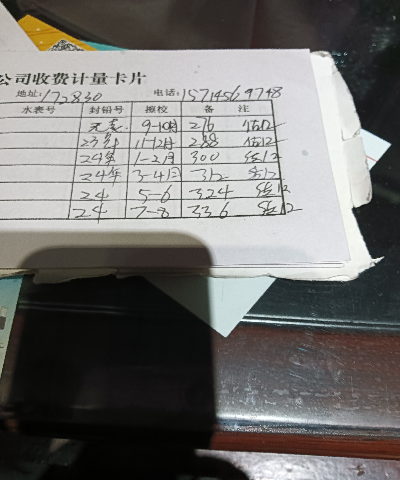 公司收费计量卡片
地址:172830 电话:15714569748
水表号 封铅号 擦校 备 注
9-10月 276 估12
23年 11-12月 288 估12
24年 1-2月 300 估12
24年 3-4月 312 估12
24 5-6 324 估12
24 7-8 336 估12